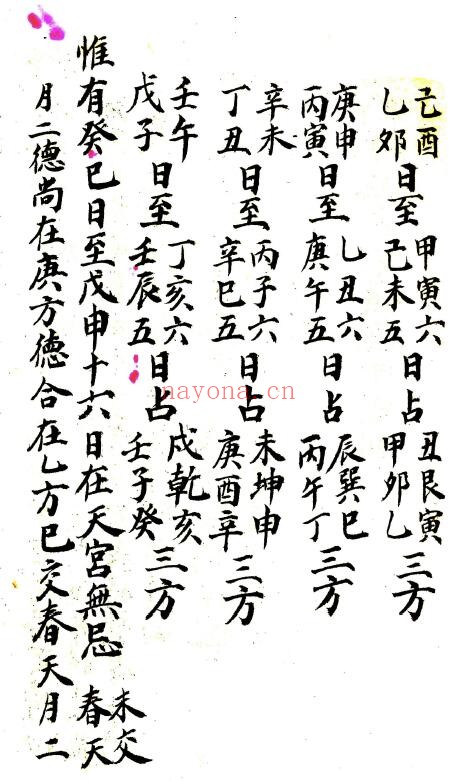 己酉乙卯日至甲寅六己未五日占丑艮寅甲卯乙三方
庚申丙寅日至乙丑六庚午五日占辰巽巳丙午丁三方
辛未丁丑日至丙子六辛巳五日占未坤申庚酉辛三方
壬午戊子日至丁亥六壬辰五日占戌乾亥壬子癸三方
惟有癸巳日至戊申十六日在天宮無忌未交春天
月二德尚在庚方德合在乙方巳交春天月二
nayona.cn